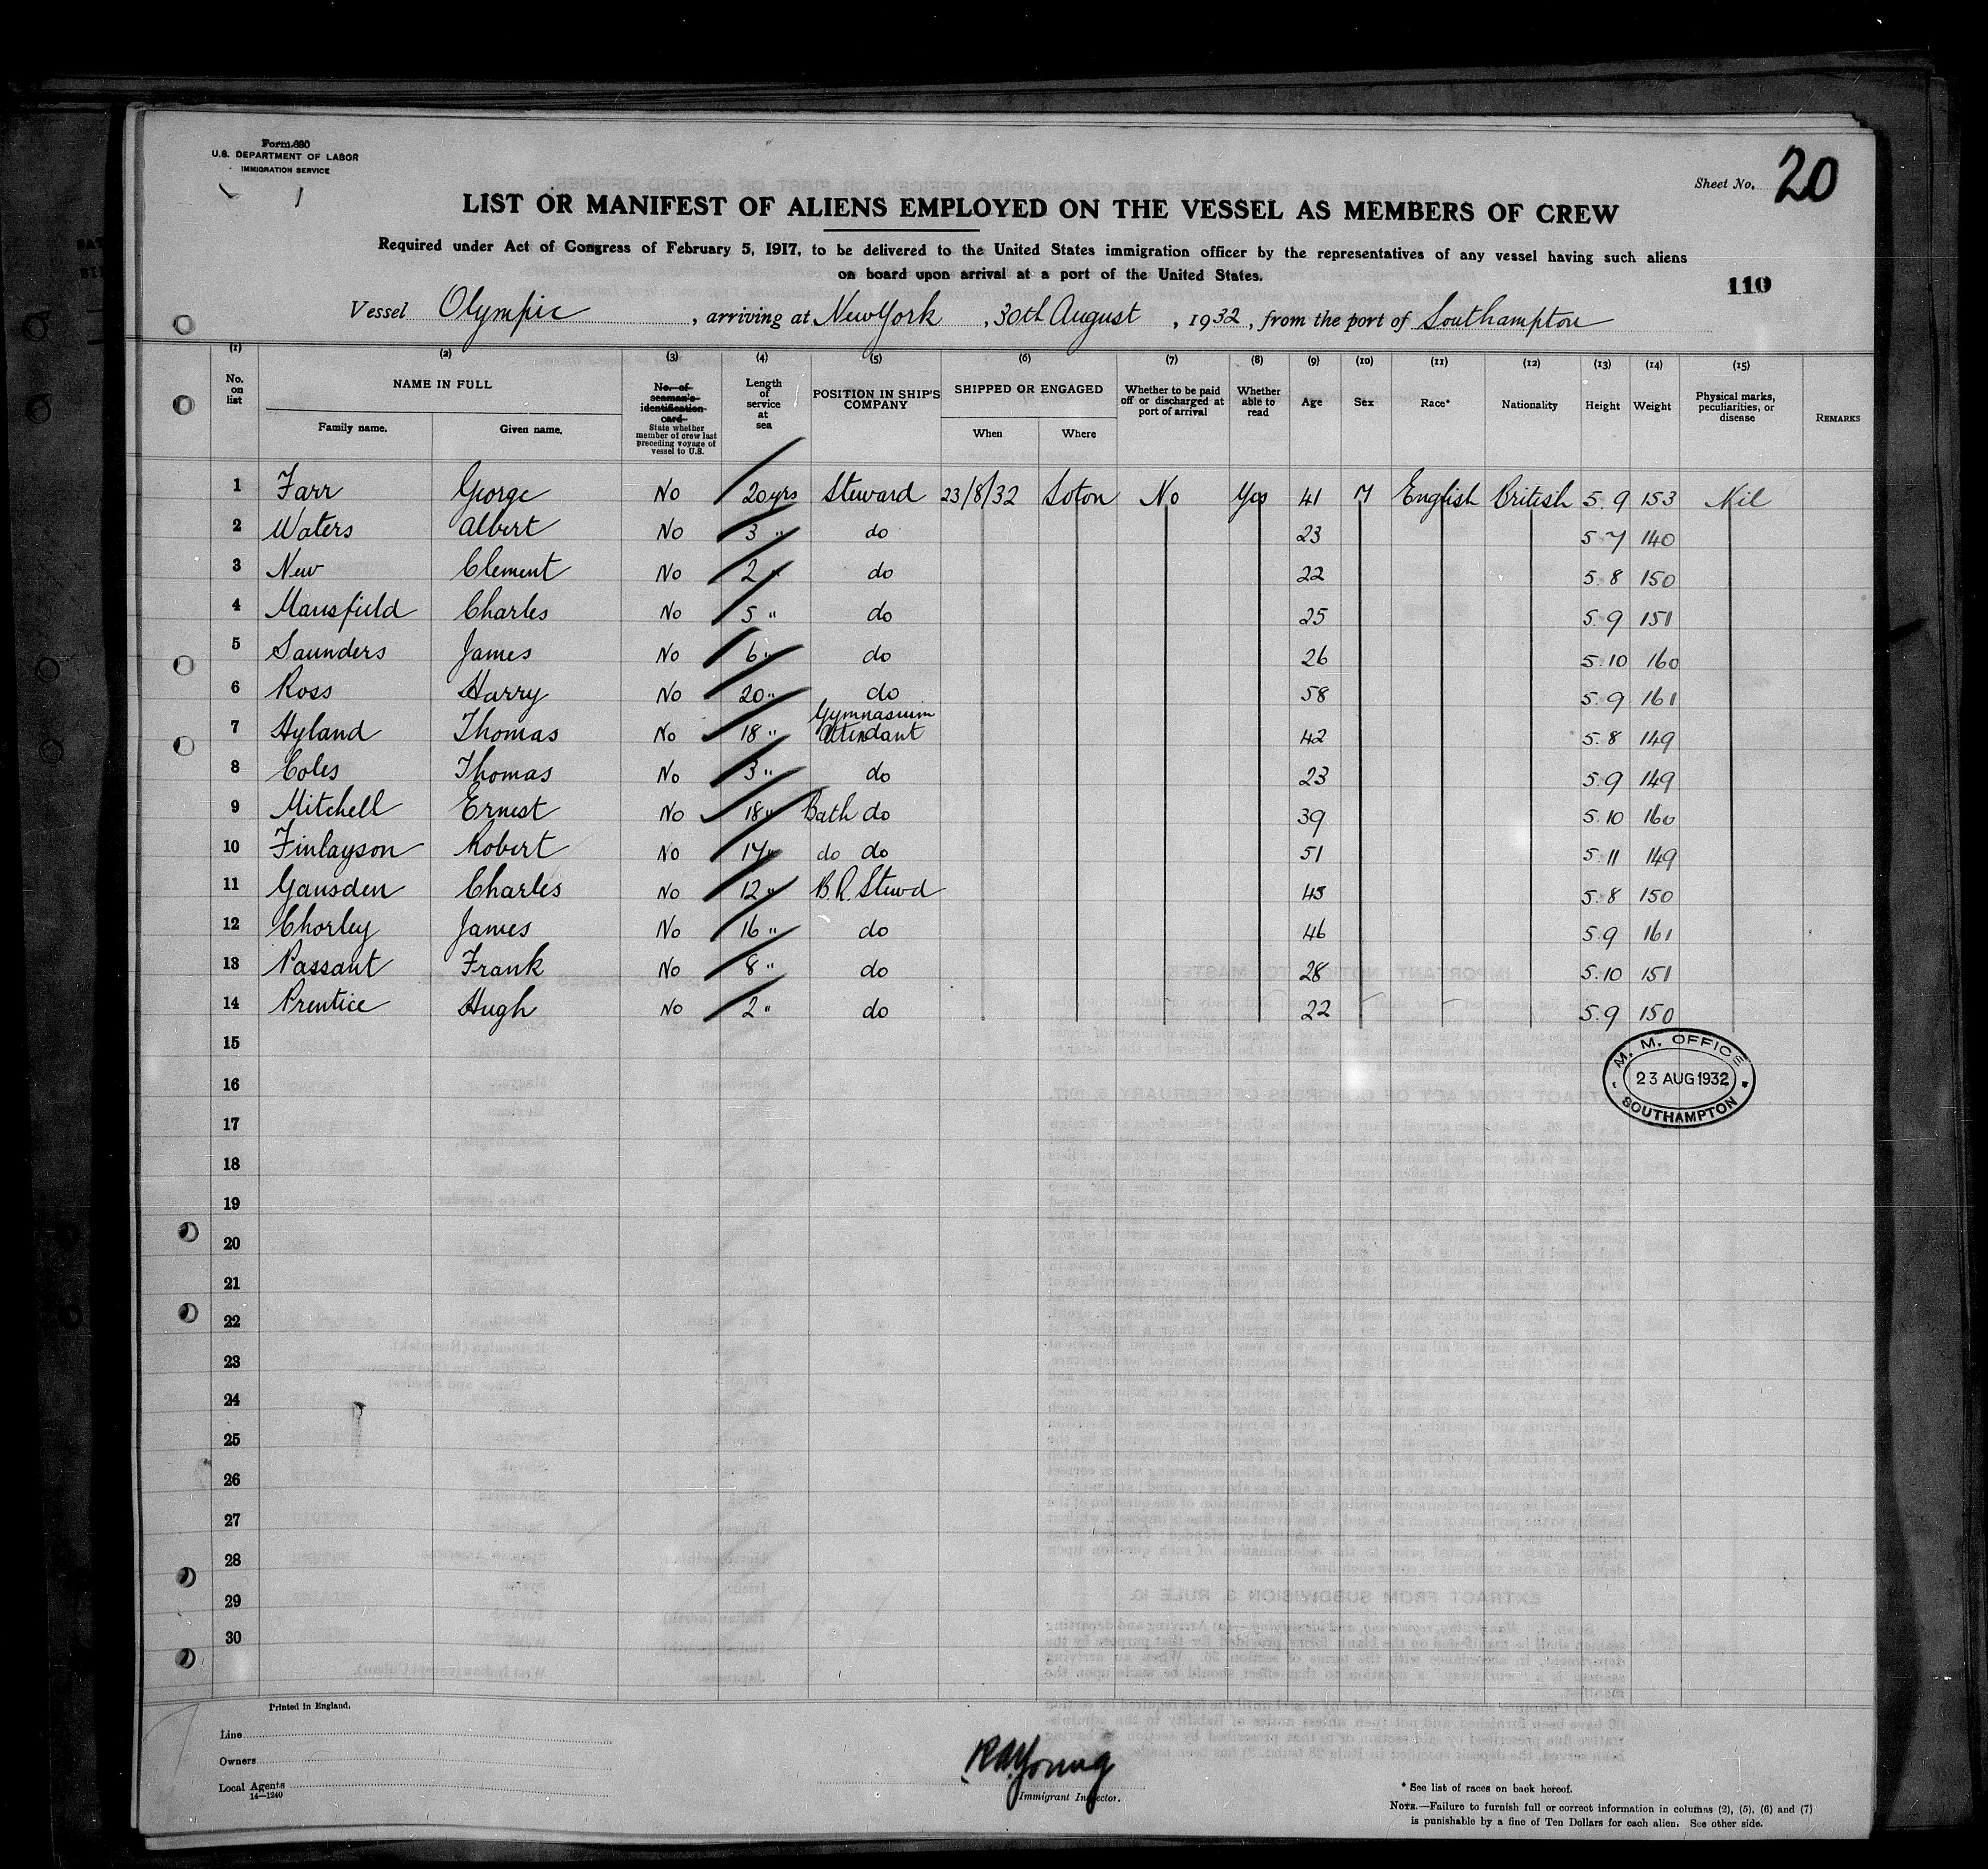 Form 680
U.S. DEPARTMENT OF LABOR
IMMIGRATION SERVICE
Sheet No. 20
LIST OR MANIFEST OF ALIENS EMPLOYED ON THE VESSEL AS MEMBERS OF CREW
Required under Act of Congress of February 5, 1917, to be delivered to the United States immigration officer by the representatives of any vessel having such aliens
on board upon arrival at a port of the United States.
110
Vessel Olympic, arriving at New York, 30th August, 1932, from the port of Southampton
(1) (2) (3) (4) (5) (6) (7) (8) (9) (10) (11) (12) (13) (14) (15)
No. on list
NAME IN FULL
Family name. Given name.
No. of seaman's identification card
State whether member of crew last preceding voyage of vessel to U.S.
Length of service at sea
POSITION IN SHIP'S COMPANY
SHIPPED OR ENGAGED
When Where
Whether to be paid off or discharged at port of arrival
Whether able to read
Age
Sex
Race*
Nationality
Height
Weight
Physical marks, peculiarities, or disease
REMARKS
1 Farr George No 20 yrs Steward 23/8/32 Soton No Yes 41 M English British 5.9 153 Nil
2 Waters Albert No 3 " do 23 5.7 140
3 New Clement No 2 " do 22 5.8 150
4 Mansfield Charles No 5 " do 25 5.9 151
5 Saunders James No 6 " do 26 5.10 160
6 Ross Harry No 20 " do 58 5.9 161
7 Hyland Thomas No 18 " Gymnasium Attendant 42 5.8 149
8 Coles Thomas No 3 " do 23 5.9 149
9 Mitchell Ernest No 18 " Bath do 39 5.10 160
10 Finlayson Robert No 17 " do do 51 5.11 149
11 Gausden Charles No 12 " B.R. Stewd 45 5.8 150
12 Chorley James No 16 " do 46 5.9 161
13 Passant Frank No 8 " do 28 5.10 151
14 Prentice Hugh No 2 " do 22 5.9 150
15
M. M. OFFICE
23 AUG 1932
SOUTHAMPTON
16
17
18
19
20
21
22
23
24
25
26
27
28
29
30
Printed in England.
Line
Owners
Local Agents
14—1240
R A Young
Immigrant Inspector.
* See list of races on back hereof.
NOTE.—Failure to furnish full or correct information in columns (2), (5), (6) and (7)
is punishable by a fine of Ten Dollars for each alien. See other side.